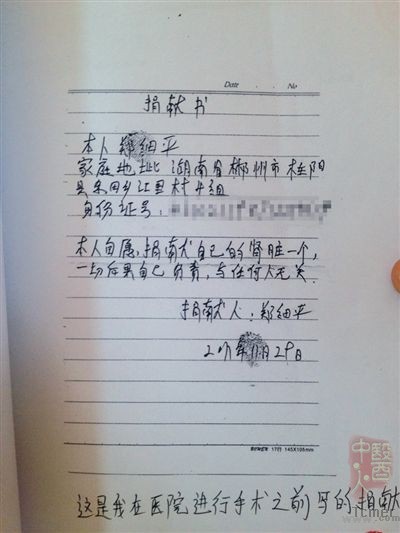 Date . . No
捐献书
本人郑细平
家庭地址 湖南省郴州市桂阳
县东回乡江里村4组
身份证号：
本人自愿，捐献自己的肾脏一个，
一切后果自己负责，与任何人无关.
捐献人：郑细平
年11月29日
17行 145X105mm
这是我在医院进行手术之前写的捐献